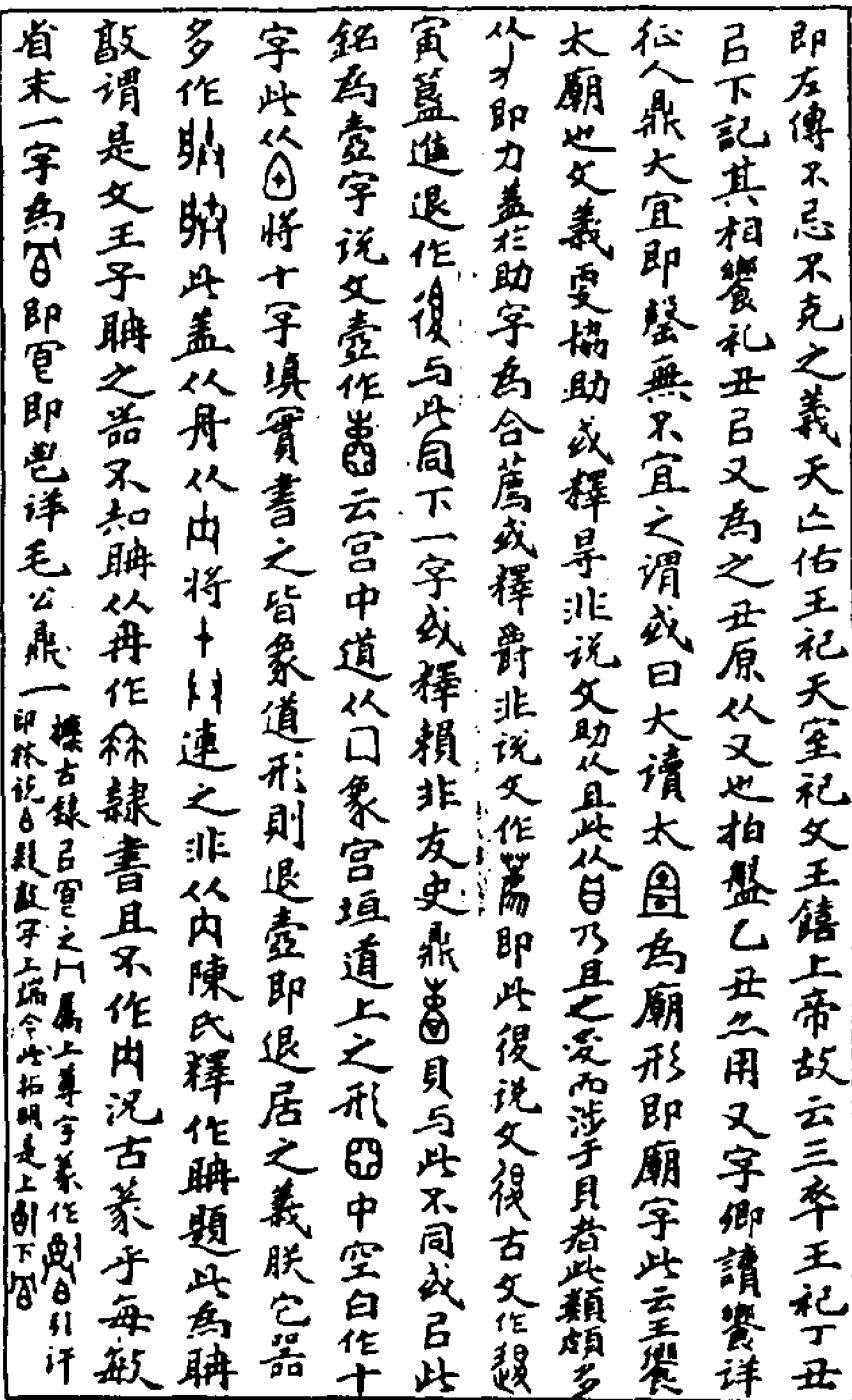 即左傳不忌不克之義天亾佑王祀天室祀文王饎上帝故云三卒王祀丁丑
㠯下記其相饗礼丑㠯又為之丑原从又也拍盤乙丑亦用又字卿讀饗詳
征人鼎大宜即罄無不宜之謂或曰大讀太為廟形即廟字此云王饗
太廟也文義更協助或釋㝵非説文助从且此从乃且之変而涉于貝者此類頗多
从即力蓋於助字為合薦或釋爵非説文作薦即此復説文復古文作
寅簋進退作復与此同下一字或釋賴非友史鼎貝与此不同或㠯此
銘為壼字説文壼作云宫中道从囗象宫垣道上之形中空白作十
字此从將十字填實書之皆象道形則退壼即退居之義朕它器
多作此蓋从冄从内將連之非从内陳氏釋作聃題此為聃
敲謂是文王子聃之器不知聃从冄作隸書且不作内况古篆乎每敏
省末一字為即即皀詳毛公鼎一
攈古錄㠯之冂屬上尊字篆作引許
印林説疑敲字上端今此拓明是上下